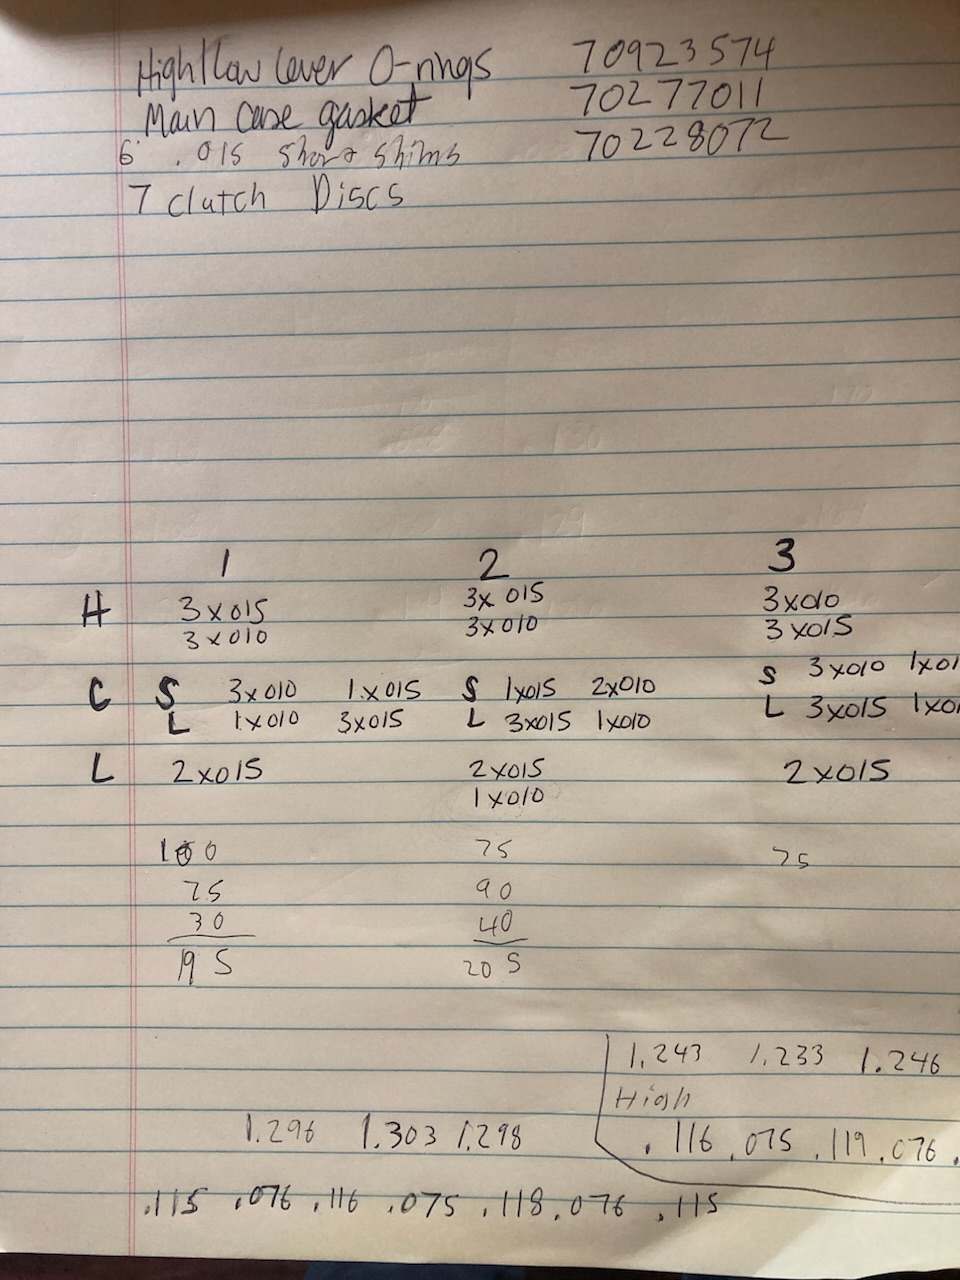 High/low lever O-rings 70923574
Main case gasket 70277011
6 .015 short shims 70228072
7 clutch Discs
1 2 3
H 3x015 3x015 3x010
3x010 3x010 3x015
C S 3x010 1x015 S 1x015 2x010 S 3x010 1x01
L 1x010 3x015 L 3x015 1x010 L 3x015 1x01
L 2x015 2x015 2x015
1x010
100 75 75
75 90
30 40
195 205
1.243 1.233 1.246
High
1.296 1.303 1.298 .116 .075 .119 .076 .
.115 .076 .116 .075 .118 .076 .115